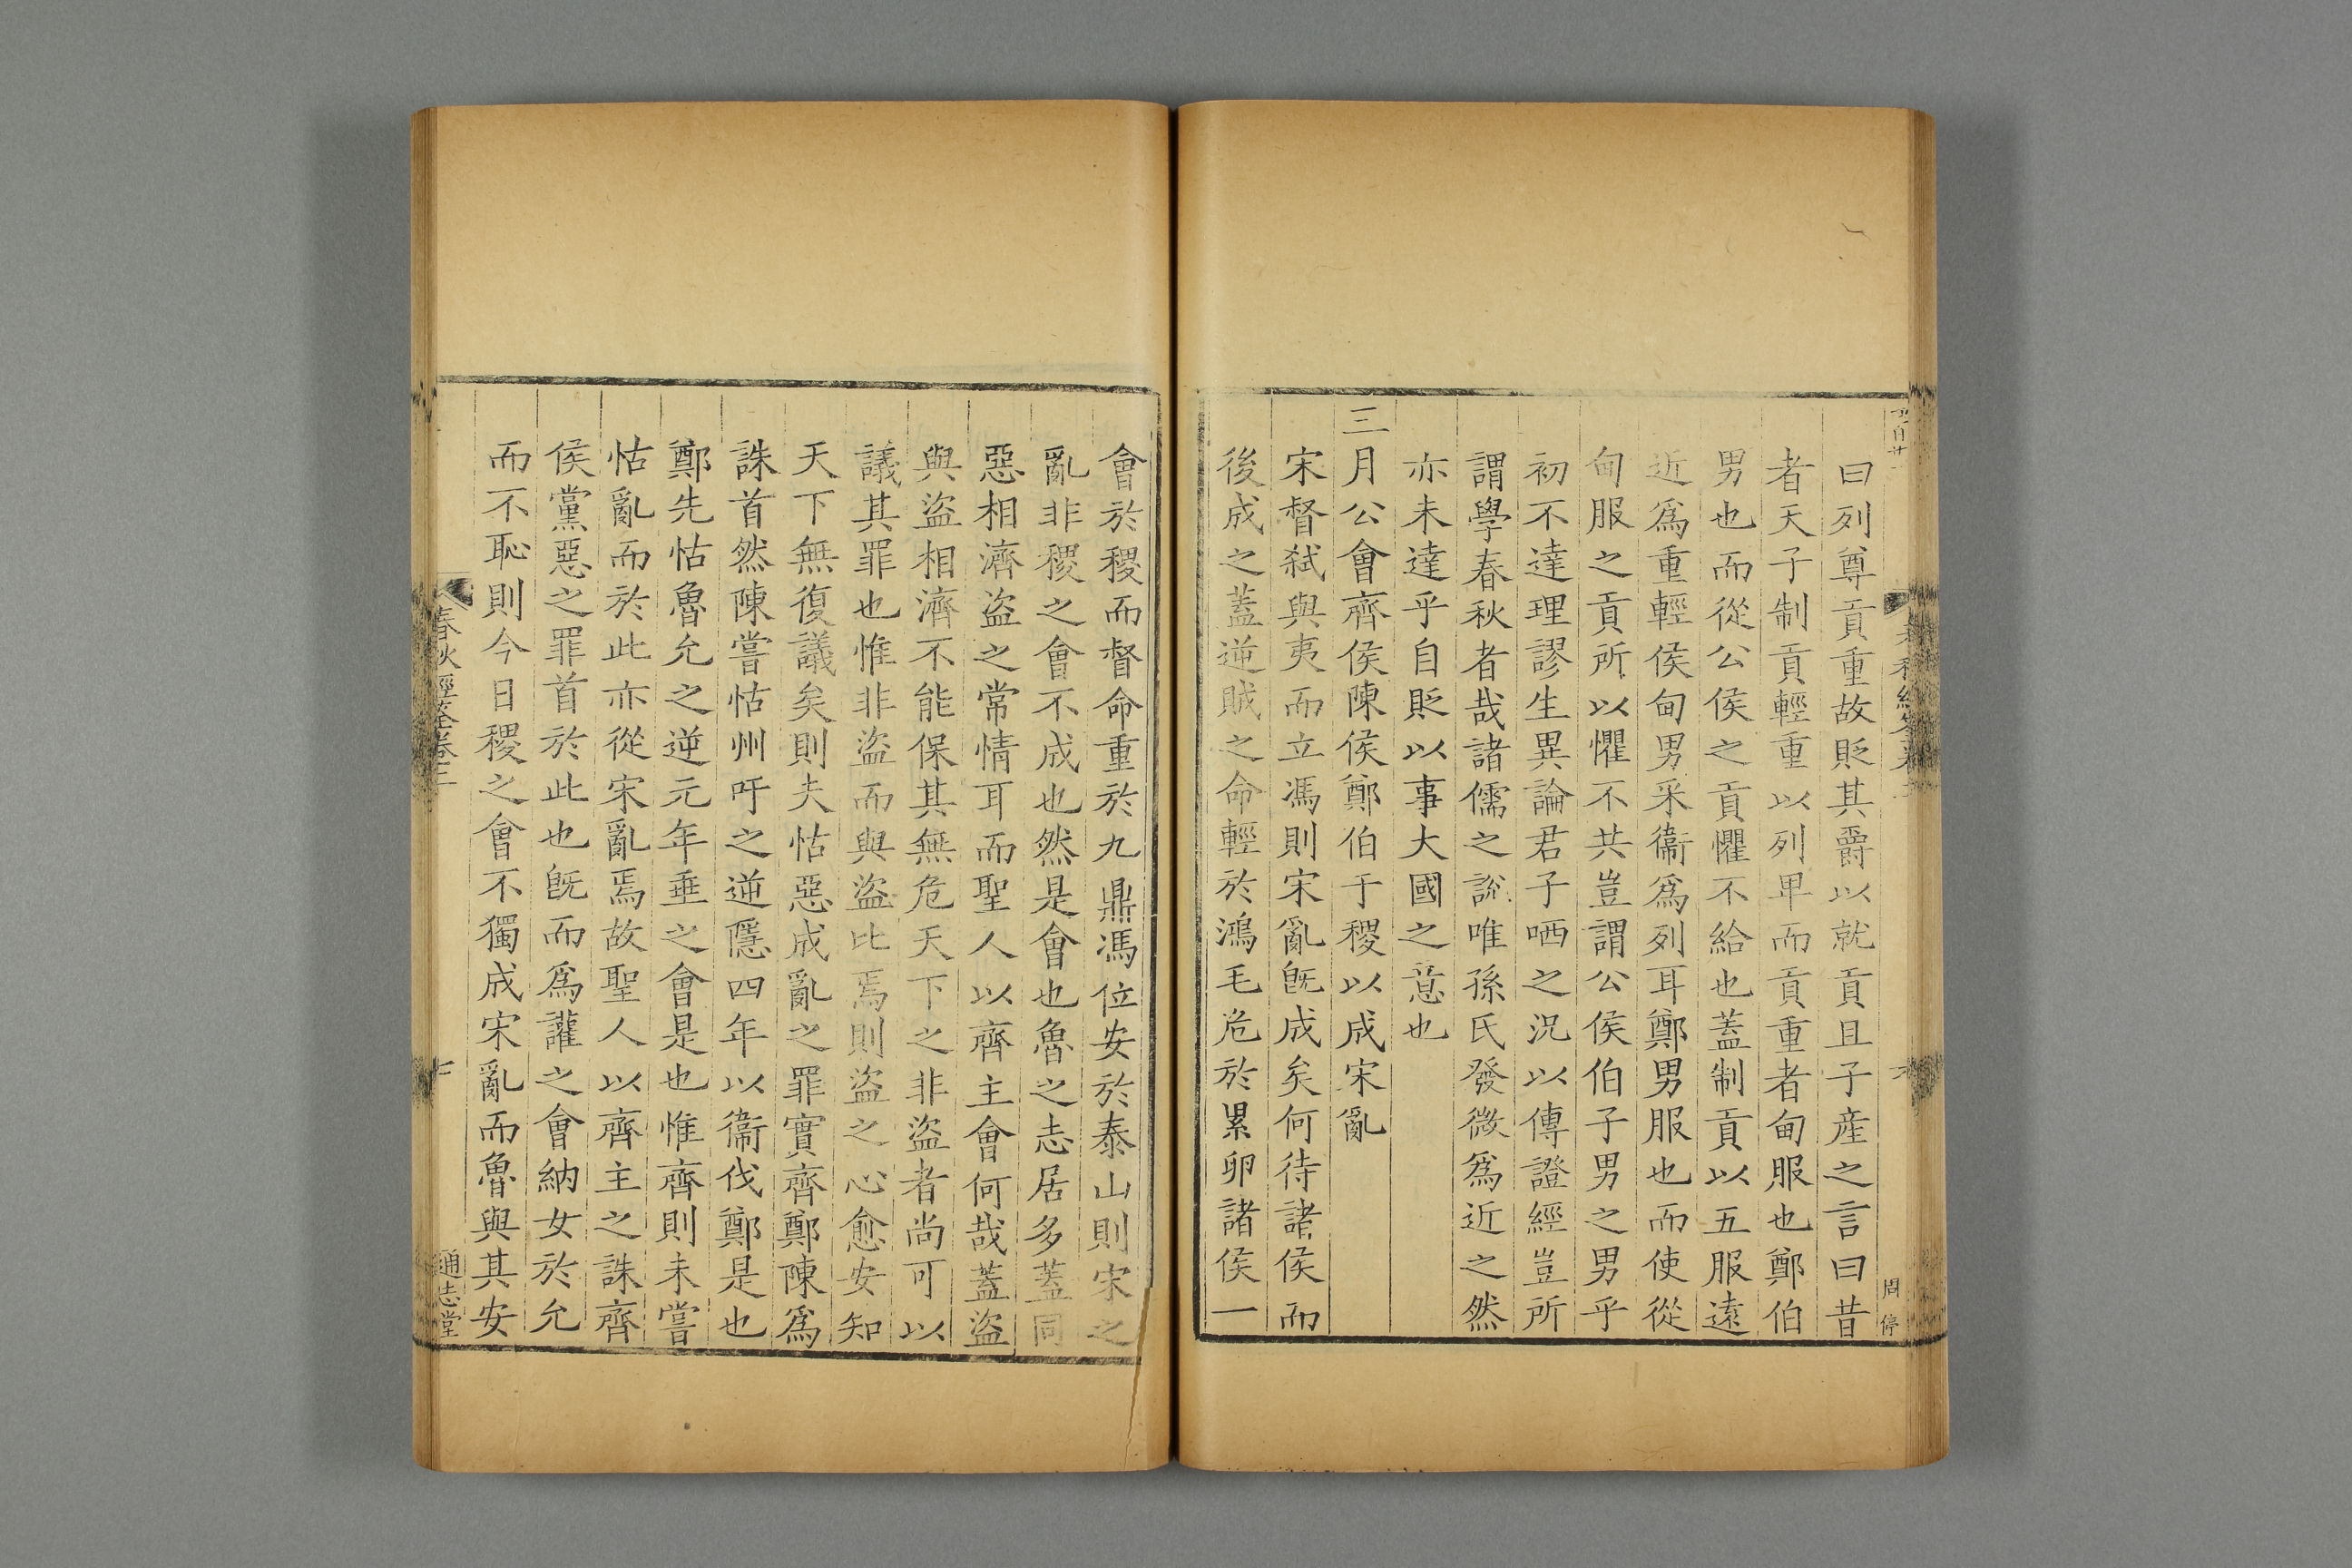 曰列尊貢重故貶其爵以就貢且子産之言曰昔
者天子制貢輕重以列甲而貢重者甸服也鄭伯
男也而從公侯之貢懼不給也蓋制貢以五服遠
近爲重輕侯甸男采衞爲列耳鄭男服也而使從
甸服之貢所以懼不共豈謂公侯伯子男之男乎
初不達理謬生異論君子哂之況以傳證經豈所
謂學春秋者哉諸儒之說唯孫氏發微爲近之然
亦未達乎自貶以事大國之意也
三月公會齊侯陳侯鄭伯于稷以成宋亂
宋督弑與夷而立馮則宋亂旣成矣何待諸侯而
後成之蓋逆賊之命輕於鴻毛危於累卵諸侯一
周停
會於稷而督命重於九鼎馮位安於泰山則宋之
亂非稷之會不成也然是會也魯之志居多蓋同
惡相濟盜之常情耳而聖人以齊主會何哉蓋盜
與盜相濟不能保其無危天下之非盜者尚可以
議其罪也惟非盜而與盜比焉則盜之心愈安知
天下無復議矣則夫怙惡成亂之罪實齊鄭陳爲
誅首然陳嘗怙州吁之逆隱四年以衞伐鄭是也
鄭先怙魯允之逆元年垂之會是也惟齊則未嘗
怙亂而於此亦從宋亂焉故聖人以齊主之誅齊
侯黨惡之罪首於此也旣而爲讙之會納女於允
而不恥則今日稷之會不獨成宋亂而魯與其安
春秋經筌卷三
七
通志堂